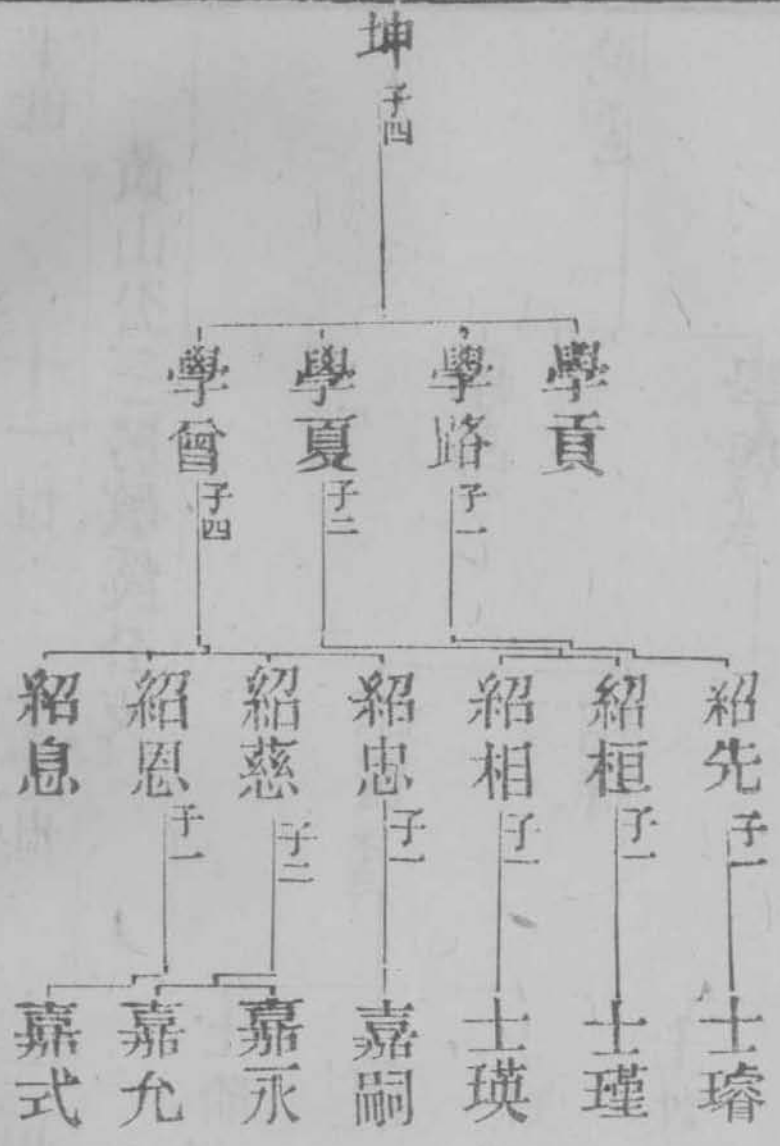 坤 子四
學貢
學路 子一
學夏 子二
學曾 子四
紹先 子一
紹桓 子一
紹相 子一
紹忠 子一
紹慈 子二
紹恩 子一
紹息
士璿
士瑾
士瑛
嘉嗣
嘉永
嘉允
嘉式